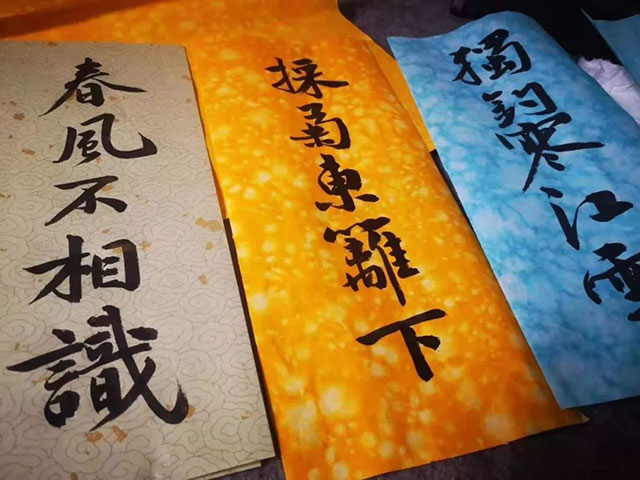 春風不相識
採菊東籬下
獨釣寒江雪